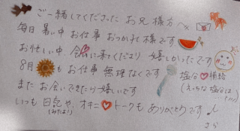 ご一緒してくださった お兄様方へ
毎日 暑い中 お仕事 おつかれ様です
お忙しい中 会いに来てくださり 嬉しかったです
8月も お仕事 無理なさらず
塩分 補給
また お会いできたら嬉しいです
いつも 日記や オキニトークも ありがとうです